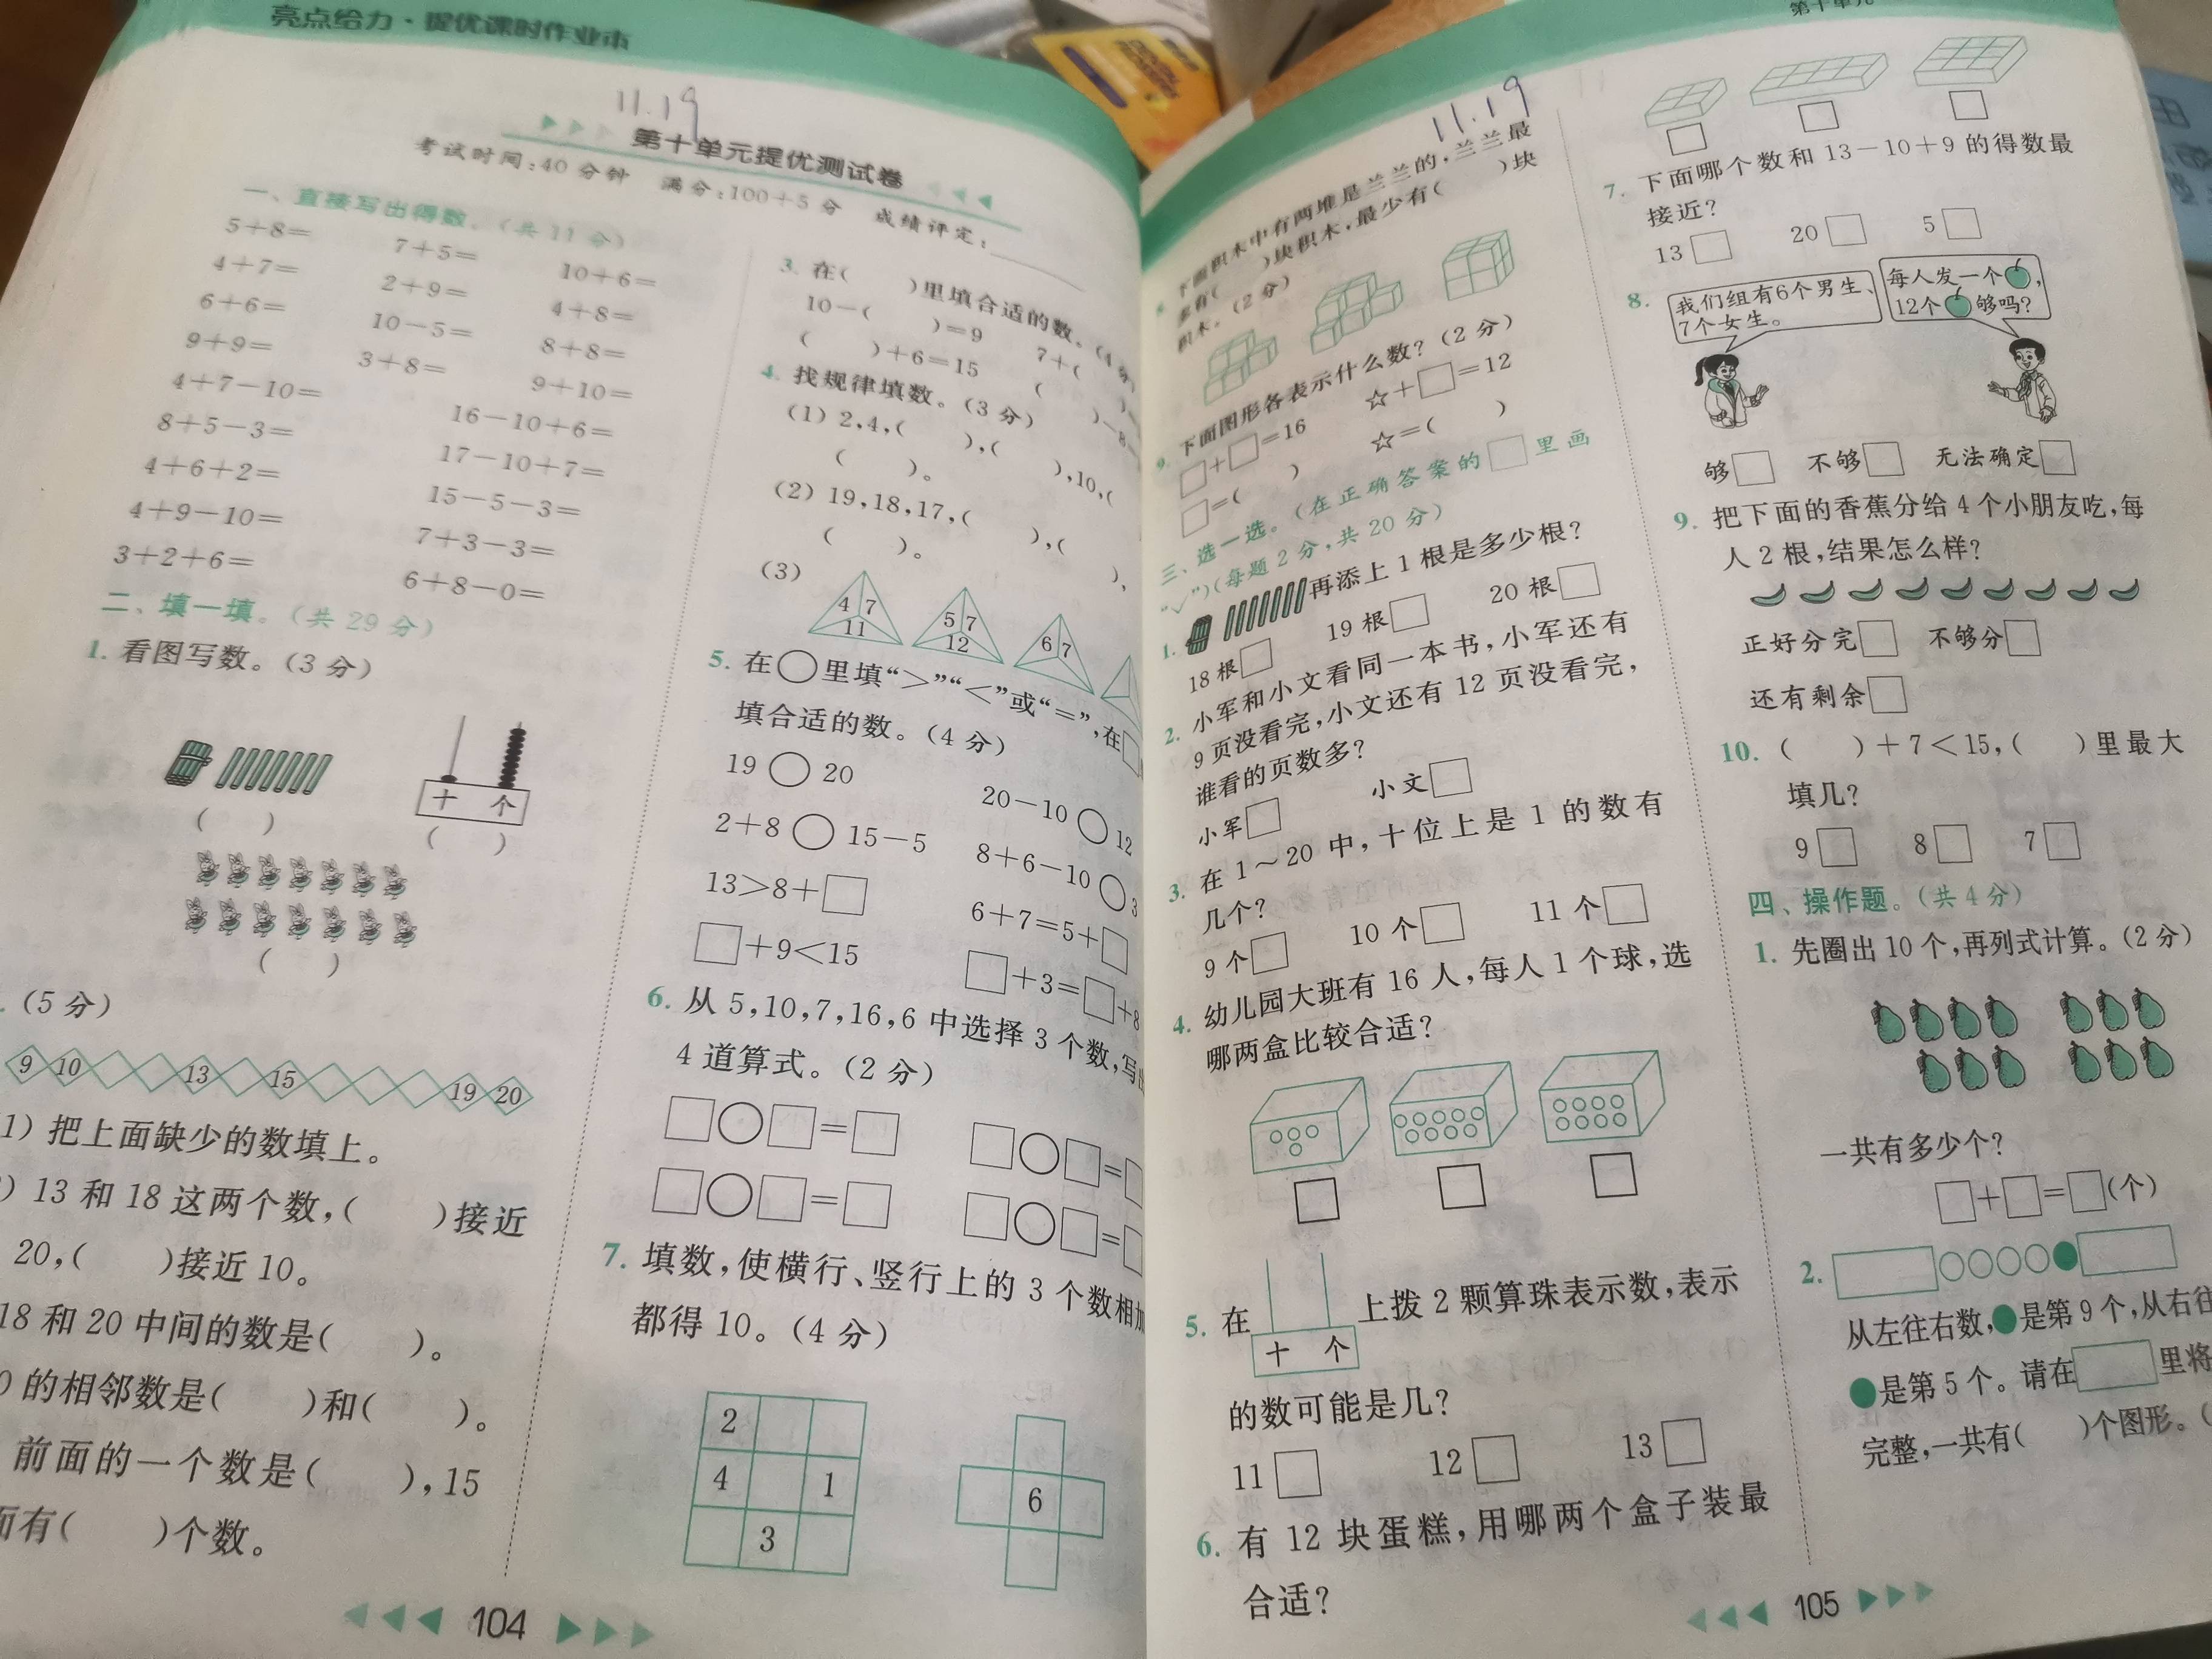 亮点给力·提优课时作业本
11.19
第十单元提优测试卷
考试时间:40分钟 满分:100+5分 成绩评定:
一、直接写出得数。(共11分)
5+8= 7+5= 10+6=
4+7= 2+9= 4+8=
6+6= 10-5= 8+8=
9+9= 3+8= 9+10=
4+7-10= 16-10+6=
8+5-3= 17-10+7=
4+6+2= 15-5-3=
4+9-10= 7+3-3=
3+2+6= 6+8-0=
二、填一填。(共29分)
1. 看图写数。(3分)
十 个
( ) ( )
( )
(5分)
9 10 13 15 19 20
1) 把上面缺少的数填上。
) 13和18这两个数,( )接近
20,( )接近10。
18和20中间的数是( )。
0的相邻数是( )和( )。
前面的一个数是( ),15
面有( )个数。
3. 在( )里填合适的数。(4分)
10-( )=9 7+(
( )+6=15 ( )-8
4. 找规律填数。(3分)
(1) 2,4,( ),( ),10,(
( )。
(2) 19,18,17,( ),( ),
( )。
(3)
4 7 11 5 7 12 6 7
5. 在○里填“>”“<”或“=”,在□
填合适的数。(4分)
19○20 20-10○12
2+8○15-5 8+6-10○3
13>8+□ 6+7=5+□
□+9<15 □+3=□+8
6. 从5,10,7,16,6中选择3个数,写出
4道算式。(2分)
□○□=□ □○□=□
□○□=□ □○□=□
7. 填数,使横行、竖行上的3个数相加
都得10。(4分)
2
4 1
3
6
104
第十单元
11.19
下面积木中有两堆是兰兰的,兰兰最
多有( )块积木,最少有( )块
积木。(2分)
9. 下面图形各表示什么数?(2分)
□+□=16 ☆+□=12
□=( ) ☆=( )
三、选一选。(在正确答案的□里画
“✓”)(每题2分,共20分)
1. 再添上1根是多少根?
18根□ 19根□ 20根□
2. 小军和小文看同一本书,小军还有
9页没看完,小文还有12页没看完,
谁看的页数多?
小军□ 小文□
3. 在1~20中,十位上是1的数有
几个?
9个□ 10个□ 11个□
4. 幼儿园大班有16人,每人1个球,选
哪两盒比较合适?
5. 在 十 个 上拨2颗算珠表示数,表示
的数可能是几?
11□ 12□ 13□
6. 有12块蛋糕,用哪两个盒子装最
合适?
7. 下面哪个数和13-10+9的得数最
接近?
13□ 20□ 5□
8. 我们组有6个男生、
7个女生。
每人发一个,
12个够吗?
够□ 不够□ 无法确定□
9. 把下面的香蕉分给4个小朋友吃,每
人2根,结果怎么样?
正好分完□ 不够分□
还有剩余□
10. ( )+7<15,( )里最大
填几?
9□ 8□ 7□
四、操作题。(共4分)
1. 先圈出10个,再列式计算。(2分)
一共有多少个?
□+□=□(个)
2. □○○○○●□
从左往右数,●是第9个,从右往
●是第5个。请在□里将
完整,一共有( )个图形。(
105